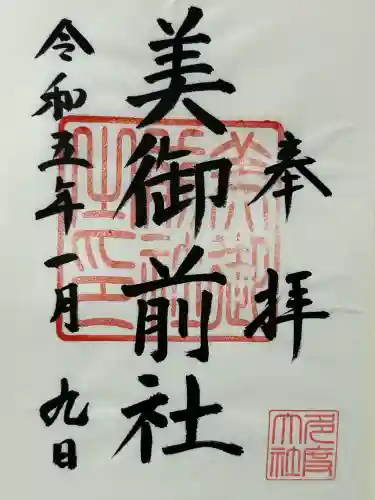 奉拝
美御前社
令和五年一月九日